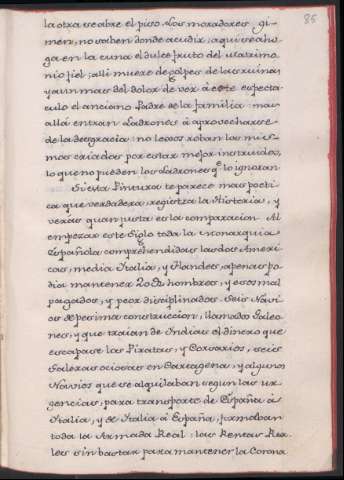 85
la otra se abre el piso. Los moradores gi-
men, no saben donde acudir, aqui se aho-
ga en la cuna el dulce fruto del Matrimo-
nio fiel; alli muere de golpes de las ruinas
y aun mas del dolor de ver à este espectà-
culo el anciano Padre de la familia: mas
allà entran Ladrones à aprovecharse
de la desgracia: no lexos roban los mis-
mos criados por estar mejor instruidos,
lo que no pueden los Ladrones qe lo ignoran.
Si esta Pintura te parece mas poeti-
ca que verdadera, registra la Historia, y
veràs quan justa es la comparacion. Al
empezar este Siglo toda la Monarquia
Española comprehendidas las dos Ameri-
cas, media Italia, y Flandes, apenas po-
dia mantener 20 hombres, y esos mal
pagados, y peor disciplinados. Seis Navi-
os de pesima construccion, llamados Galeo-
nes, y que traian de Indias el dinero que
escapase los Piratas, y Corsarios, seis
Galeras ociosas en Cartagena, y algunos
Navios que se alquilaban segun las ur-
gencias, para transporte de España à
Italia, y de Italia à España, formaban
toda la Armada Real: las Rentas Rea-
les sin bastar para mantener la Corona